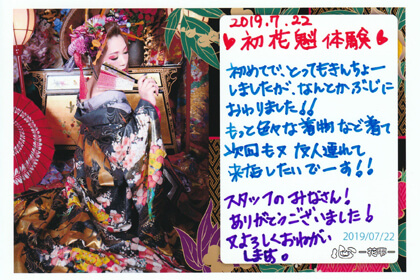 2019.7.22
♥初花魁体験♥
初めてで、とってもきんちょー
しましたが、なんとかぶじに
おわりました!!
もっと色々な着物など着て
次回もヌ友人連れて
来店したいでーす!!
スタッフのみなさん!
ありがとうございました!
又よろしくおねがい
します。
2019/07/22